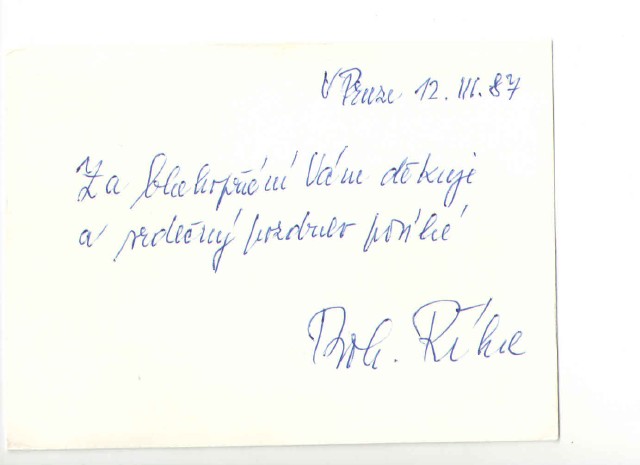 V Praze 12. III. 87
Za blahopřání Vám děkuje
a srdečný pozdrav posílá
Boh. Říha